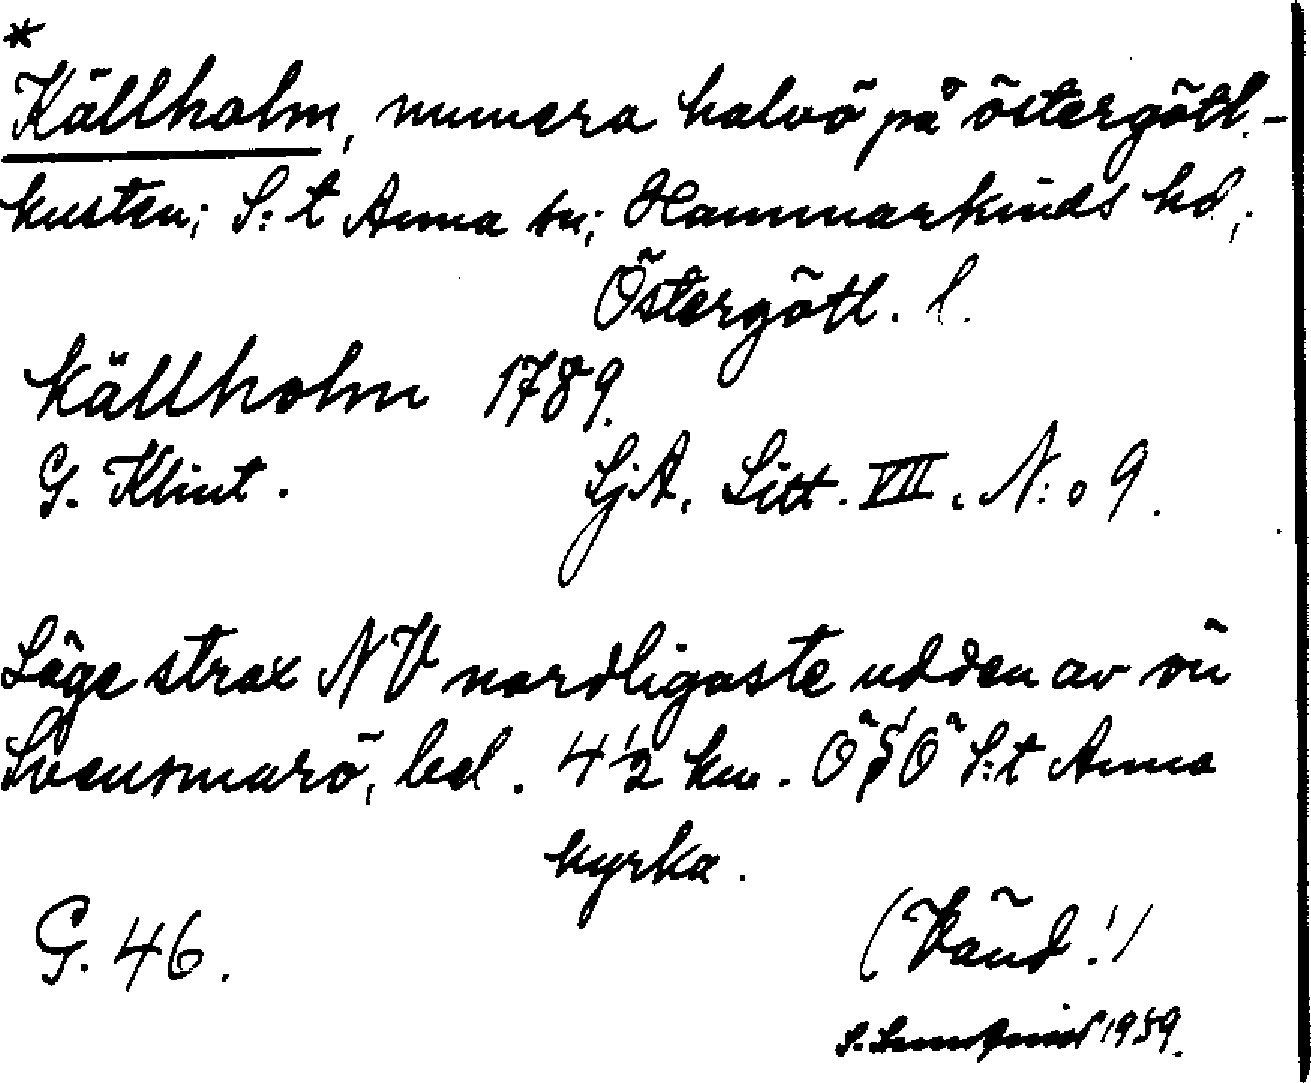 *
Källholm, numera halvö på östergötl.-
kusten; S:t Anna sn; Hammarkinds hd;
Östergötl. l.
Källholm 1789.
G. Klint. SjA. Litt. VII. N:o 9.
Läge strax NV nordligaste udden av ön
Svensmarö, bel. 4 1/2 km. Ö§Ö S:t Anna
kyrka.
G. 46. (Vänd!)
S. 1959.